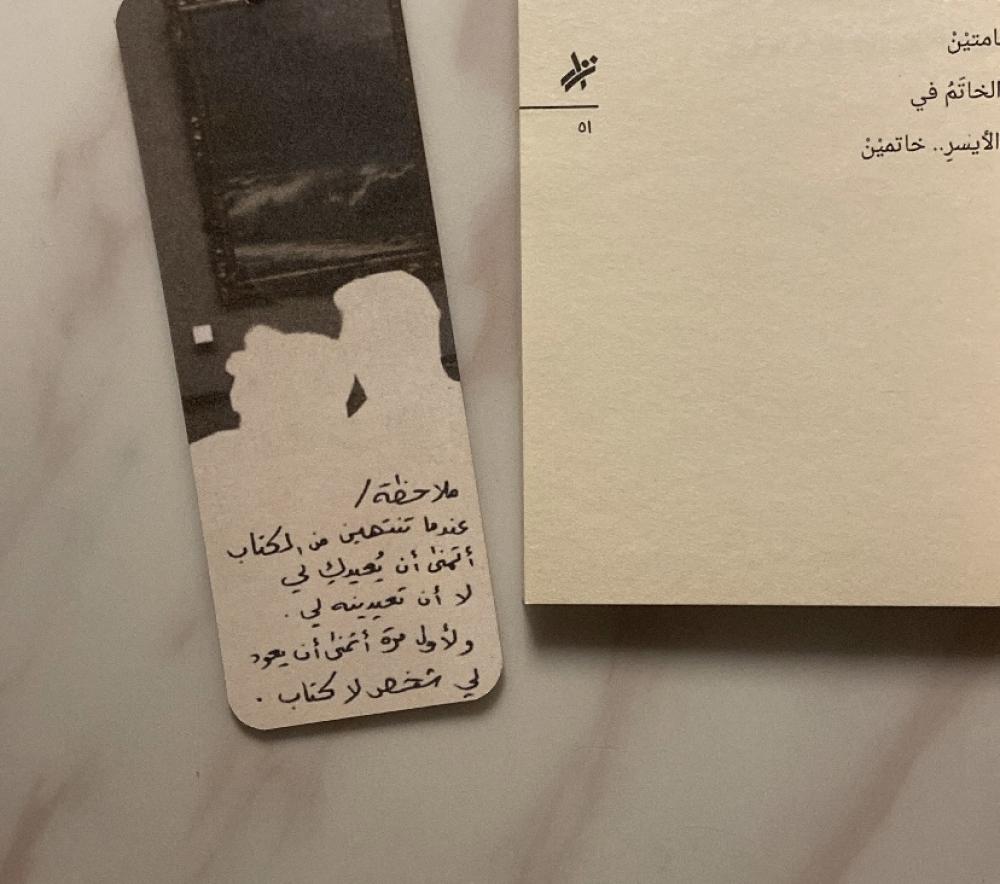 امتيْنْ
الخاتَمُ في
الأيسرِ.. خاتميْنْ
نزار
٥١
ملاحظة /
عندما تنتهين من الكتاب
أتمنى أن يُعيدكِ لي
لا أن تعيدينه لي .
ولأول مرة أتمنى أن يعود
لي شخص لا كتاب .